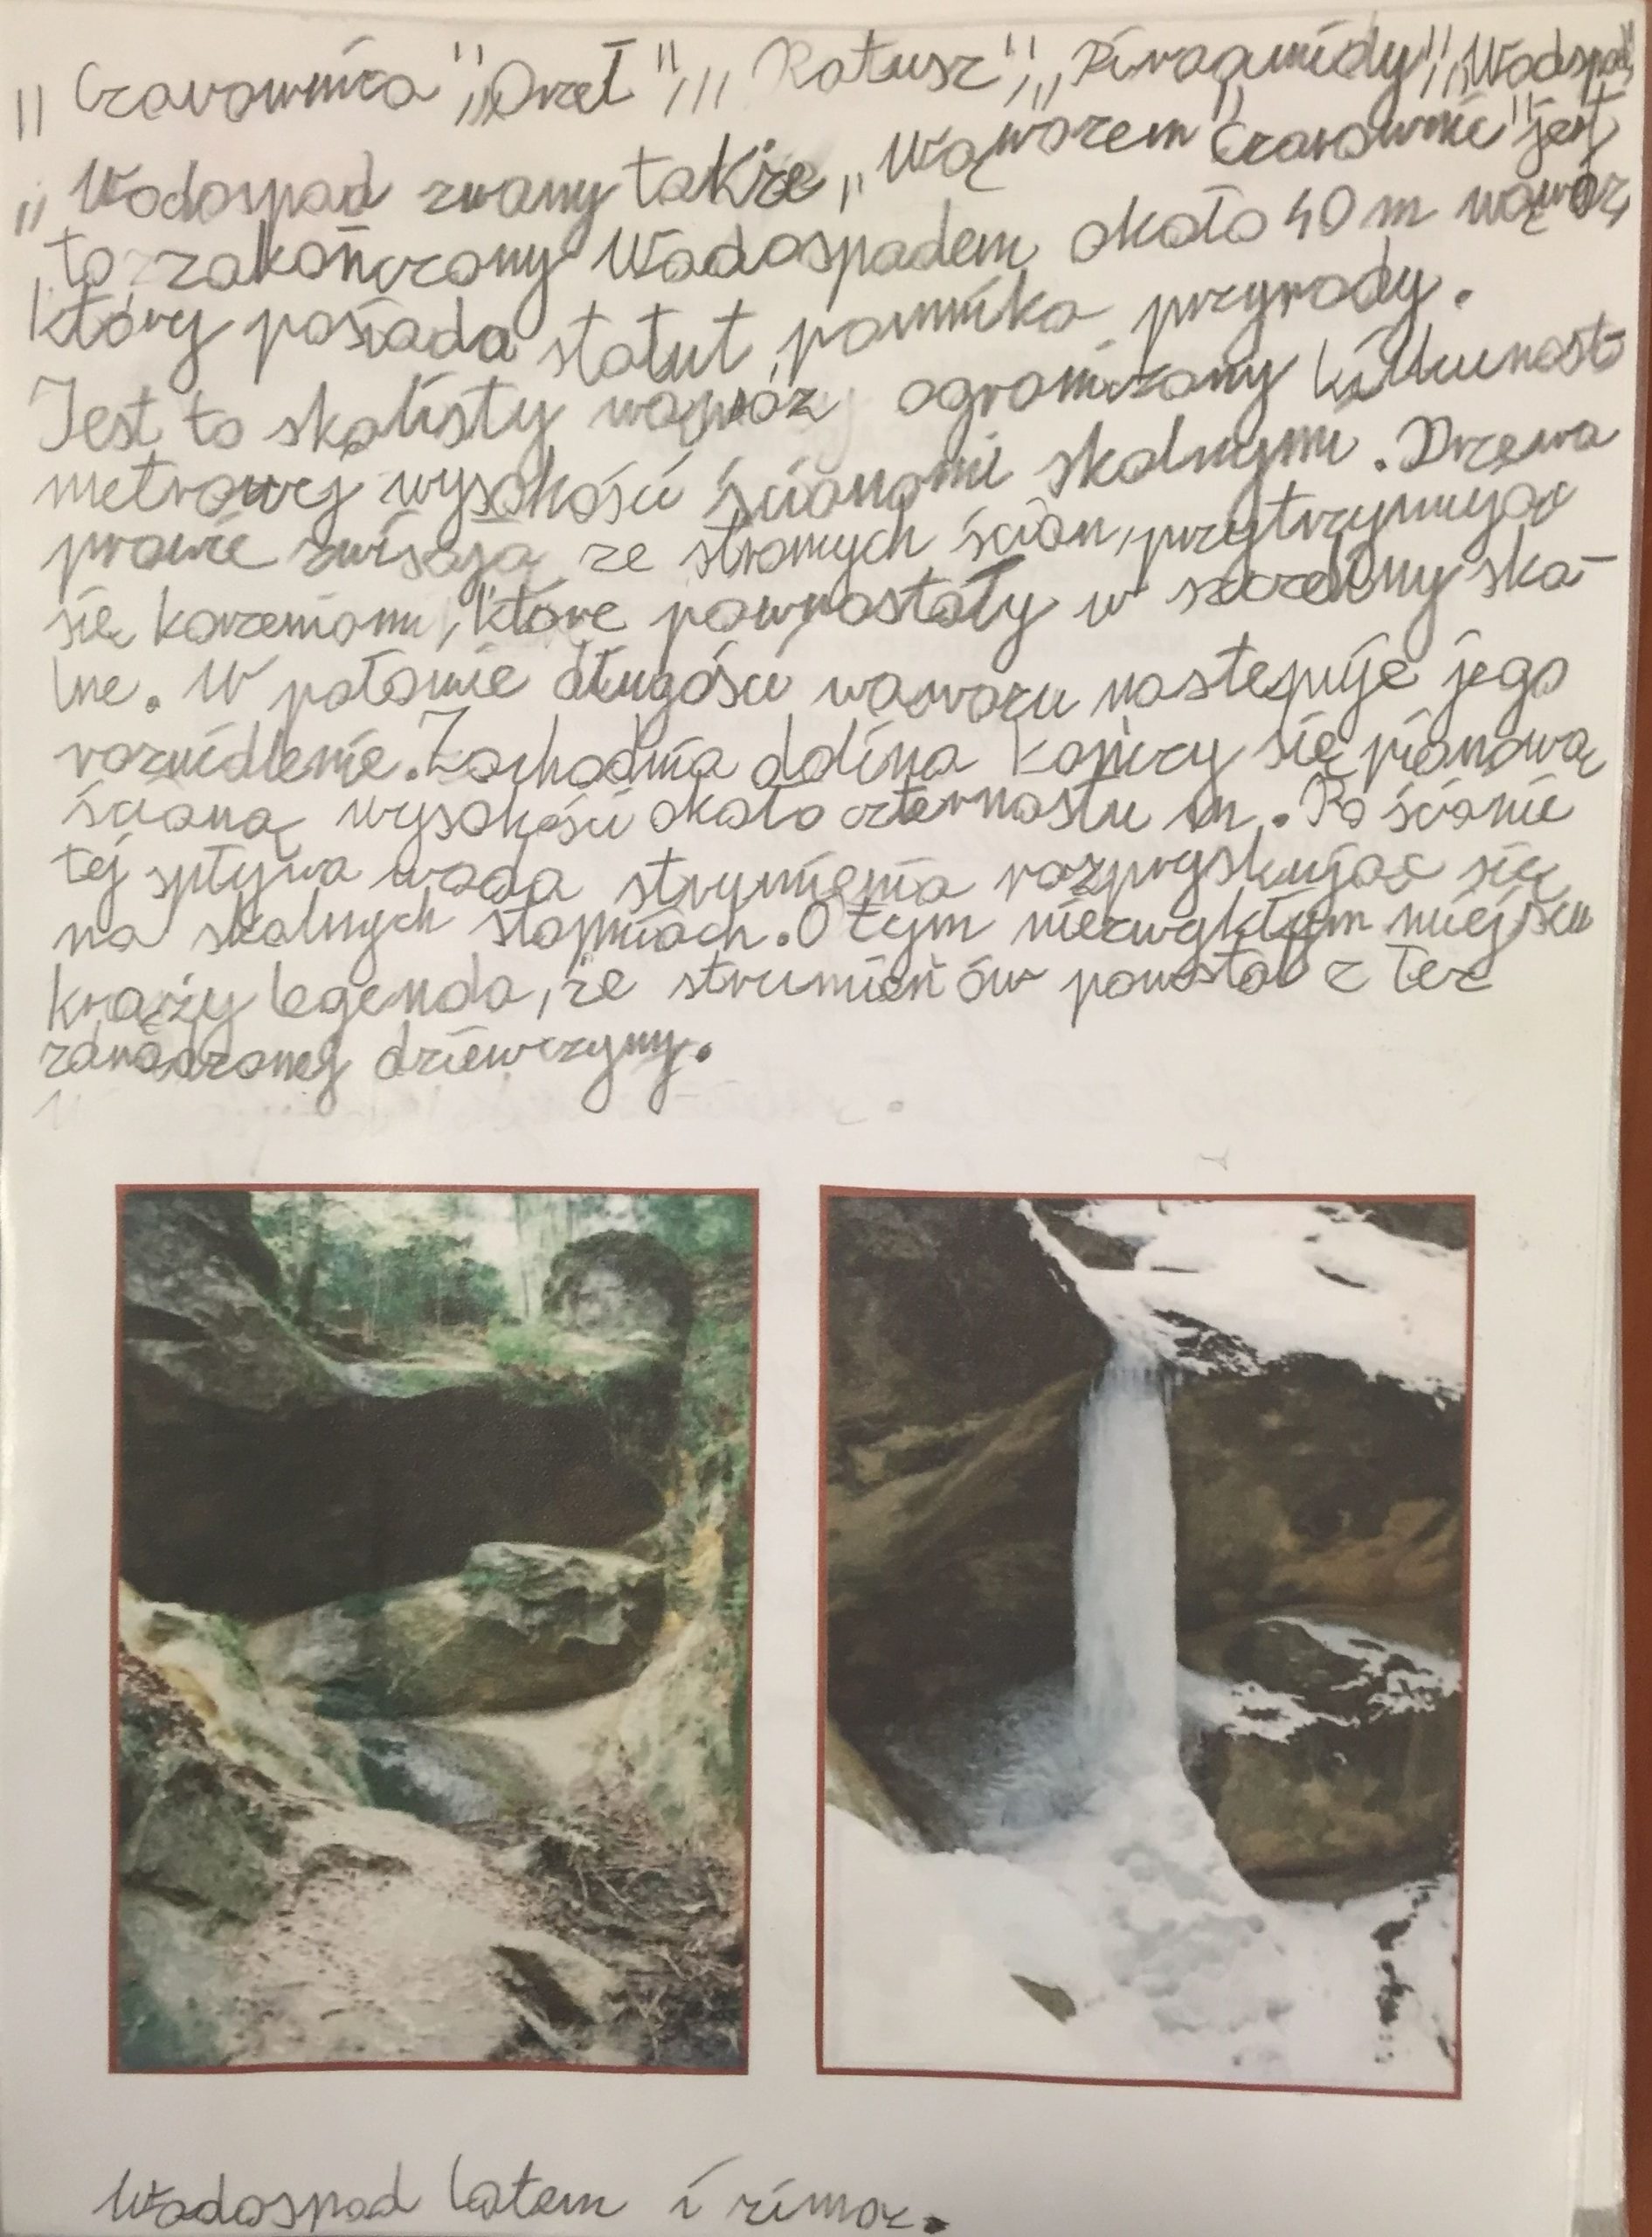 „Czarownica", „Orzeł", „Ratusz", „Piramidy", „Wodospad"
„Wodospad zwany także „Wąwozem Czarownic" jest
to zakończony Wodospadem około 40 m wąwóz,
który posiada statut pomnika przyrody.
Jest to skalisty wąwóz ograniczony kilkunasto
metrowej wysokości ścianami skalnymi. Drzewa
prawie zwisają ze stromych ścian, przytrzymując
się korzeniami, które powrastały w szczeliny ska-
lne. W połowie długości wąwozu nastepuje jego
rozwidlenie. Zachodnia dolina kończy się pionową
ścianą wysokości około czternastu m. Po ścianie
tej spływa woda strumienia rozpryskując się
na skalnych stopniach. O tym niezwykłym miejscu
krąży legenda, że strumień ów powstał z łez
zdradzonej dziewczyny.
Wodospad latem i zimą.